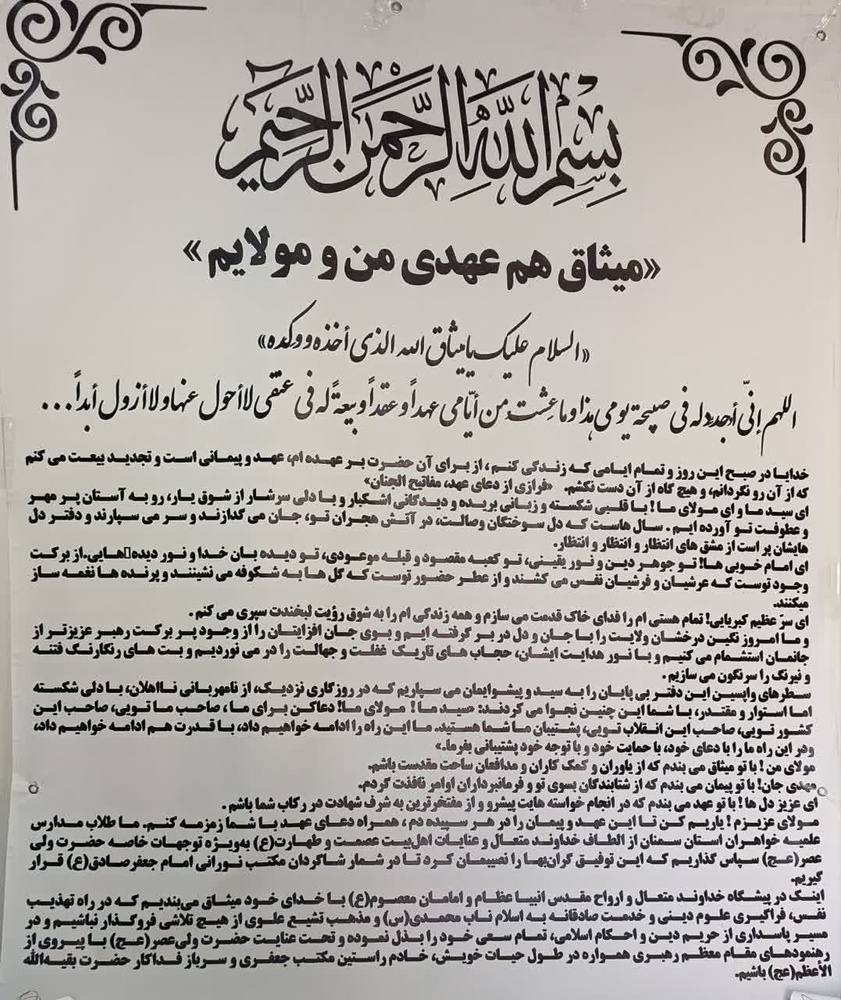 بسم الله الرحمن الرحيم
«میثاق هم عهدی من و مولایم»
«السلام علیک یا میثاق الله الذی أخذه و وکده»
اللهم إنّی أجدد له فی صبیحة یومی هذا و ما عشت من أیّامی عهداً و عقداً و بیعةً له فی عنقی لا أحول عنها و لا أزول أبداً...
خدایا در صبح این روز و تمام ایامی که زندگی کنم، از برای آن حضرت بر عهده ام، عهد و پیمانی است و تجدید بیعت می کنم
که از آن رو نگردانم، و هیچ گاه از آن دست نکشم. «فرازی از دعای عهد، مفاتیح الجنان»
ای سید ما و ای مولای ما! با قلبی شکسته و زبانی بریده و دیدگانی اشکبار و با دلی سرشار از شوق یار، رو به آستان پر مهر
و عطوفت تو آورده ایم. سال هاست که دل سوختگان وصالت، در آتش هجران تو، جان می گدازند و سر می سپارند و دفتر دل
هایشان پر است از مشق های انتظار و انتظار و انتظار.
ای امام خوبی ها! تو جوهر دین و نور یقینی، تو کعبه مقصود و قبله موعودی، تو دیده بان خدا و نور دیده□هایی. از برکت
وجود توست که عرشیان و فرشیان نفس می کشند و از عطر حضور توست که گل ها به شکوفه می نشینند و پرنده ها نغمه ساز
میکنند.
ای سرّ عظیم کبریایی! تمام هستی ام را فدای خاک قدمت می سازم و همه زندگی ام را به شوق رؤیت لبخندت سپری می کنم.
و ما امروز نگین درخشان ولایت را با جان و دل در بر گرفته ایم و بوی جان افزایتان را از وجود پر برکت رهبر عزیزتر از
جانمان استشمام می کنیم و با نور هدایت ایشان، حجاب های تاریک غفلت و جهالت را در می نوردیم و بت های رنگارنگ فتنه
و نیرنگ را سرنگون می سازیم.
سطرهای واپسین این دفتر بی پایان را به سید و پیشوایمان می سپاریم که در روزگاری نزدیک، از نامهربانی نااهلان، با دلی شکسته
اما استوار و مقتدر، با شما این چنین نجوا می کردند: «سید ما! مولای ما! دعا کن برای ما، صاحب ما تویی، صاحب این
کشور تویی، صاحب این انقلاب تویی، پشتیبان ما شما هستید. ما این راه را ادامه خواهیم داد، با قدرت هم ادامه خواهیم داد،
و در این راه ما را با دعای خود، با حمایت خود و با توجه خود پشتیبانی بفرما.»
مولای من! با تو میثاق می بندم که از یاوران و کمک کاران و مدافعان ساحت مقدست باشم.
مهدی جان! با تو پیمان می بندم که از شتابندگان بسوی تو و فرمانبرداران اوامر نافذت گردم.
ای عزیز دل ها! با تو عهد می بندم که در انجام خواسته هایت پیشرو و از مفتخرترین به شرف شهادت در رکاب شما باشم.
مولای عزیزم! یاریم کن تا این عهد و پیمان را در هر سپیده دم، همراه دعای عهد با شما زمزمه کنم. ما طلاب مدارس
علمیه خواهران استان سمنان از الطاف خداوند متعال و عنایات اهل‌بیت عصمت و طهارت(ع) به‌ویژه توجهات خاصه حضرت ولی
عصر(عج) سپاس گذاریم که این توفیق گران‌بها را نصیبمان کرد تا در شمار شاگردان مکتب نورانی امام جعفرصادق(ع) قرار
گیریم.
اینک در پیشگاه خداوند متعال و ارواح مقدس انبیا عظام و امامان معصوم(ع) با خدای خود میثاق می‌بندیم که در راه تهذیب
نفس، فراگیری علوم دینی و خدمت صادقانه به اسلام ناب محمدی(س) و مذهب تشیع علوی از هیچ تلاشی فروگذار نباشیم و در
مسیر پاسداری از حریم دین و احکام اسلامی، تمام سعی خود را بذل نموده و تحت عنایت حضرت ولی‌عصر(عج) با پیروی از
رهنمودهای مقام معظم رهبری همواره در طول حیات خویش، خادم راستین مکتب جعفری و سرباز فداکار حضرت بقیه‌الله
الأعظم(عج) باشیم.